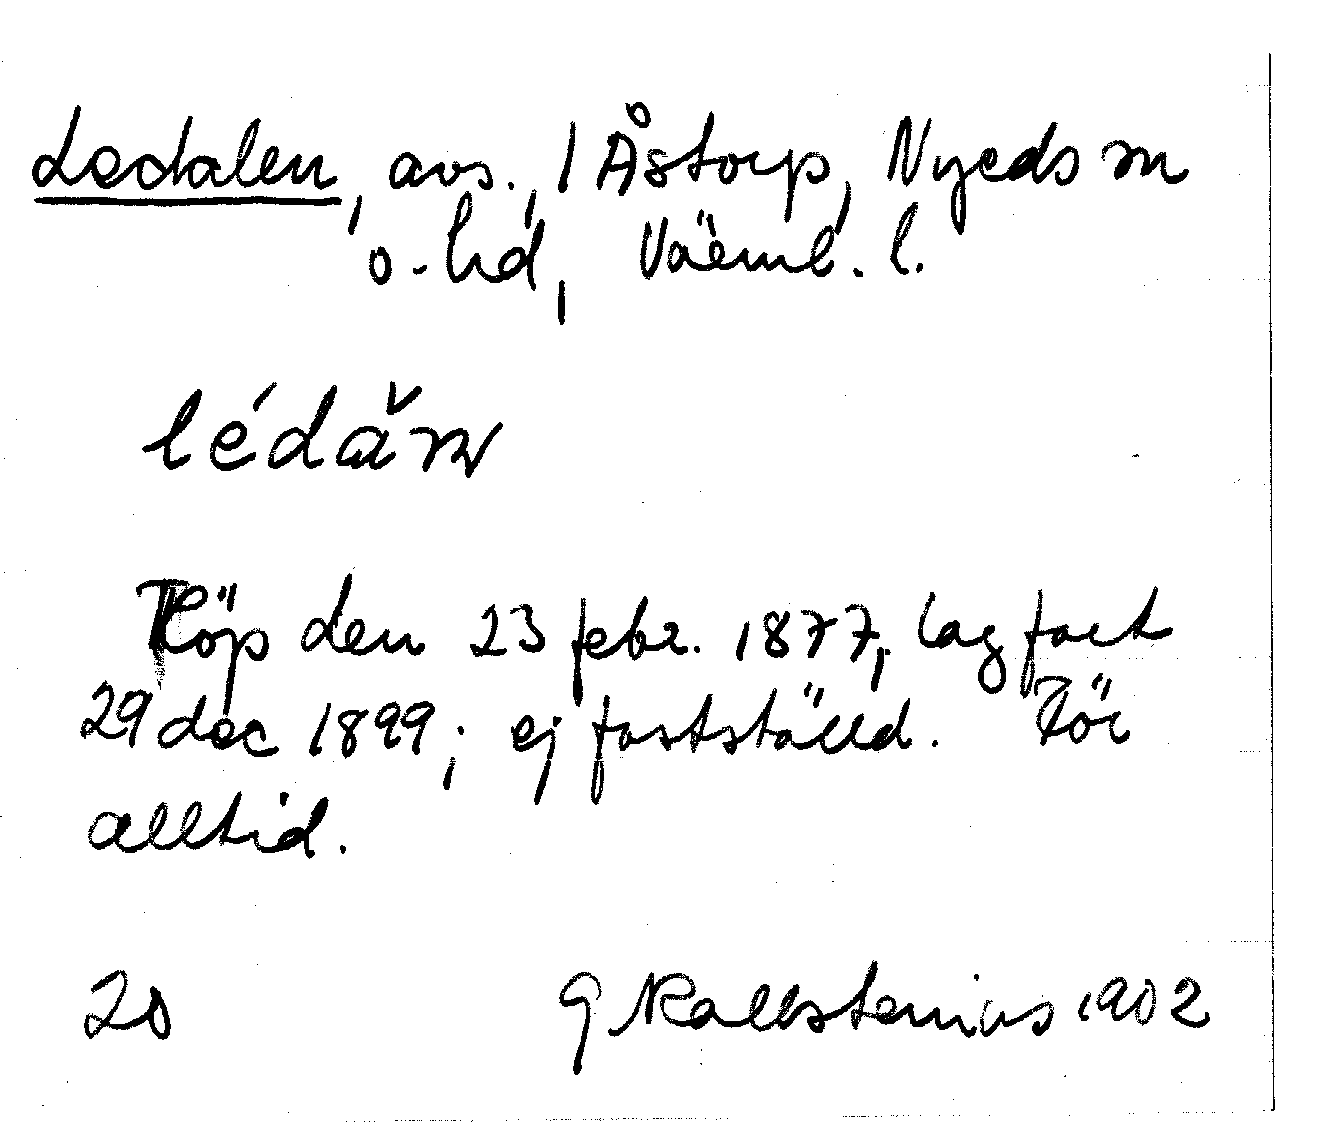 Ledalen, avs., 1 Åstorp, Nyeds sn
o. hd, Värml. l.
lédǎn
Köp den 23 febr. 1877, lagfart
29 dec 1899; ej fastställd. För
alltid.
20 G Kallstenius 1902